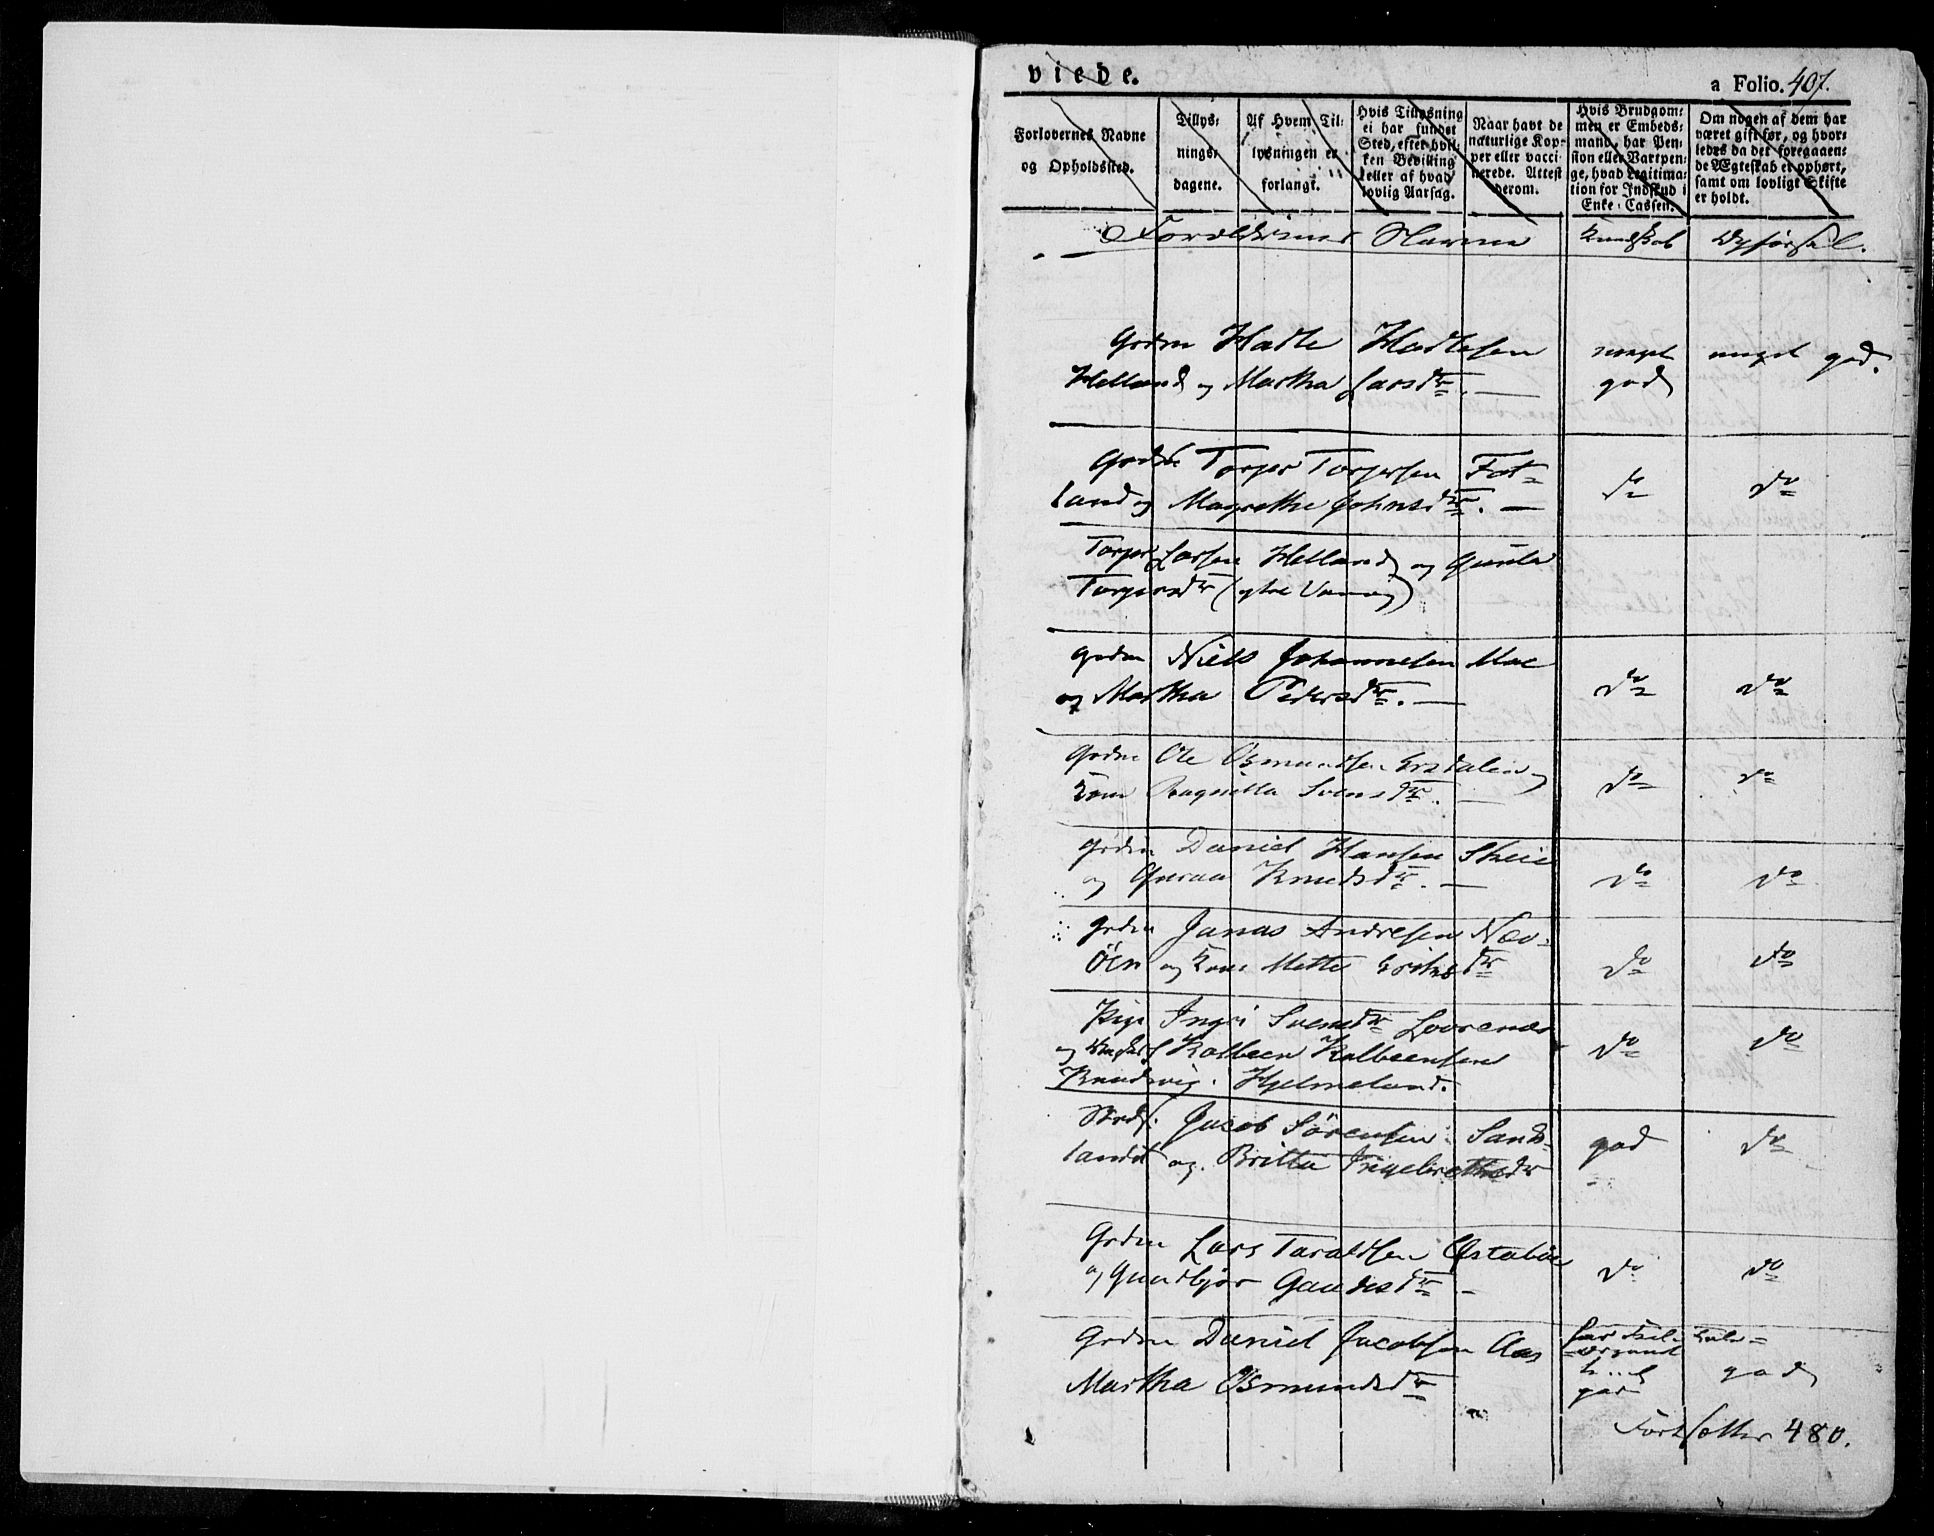 viede.
a Folio. 407.
Forlovernes Navne
og Opholdssted.
Tillys-
nings-
dagene.
Af Hvem Til-
lysningen er
forlangt.
Hvis Tillysning
ei har fundet
Sted, efter hvil-
ken Bevilling
eller af hvad
lovlig Aarsag.
Naar havt de
naturlige Kop-
per eller vacci-
nerede. Attest
derom.
Hvis Brudgom-
men er Embeds-
mand, har Pen-
sion eller Vartpen-
ge, hvad Legitima-
tion for Indskud i
Enke-Cassen.
Om nogen af dem har
været gift før, og hvor-
ledes da det foregaaen-
de Ægteskab er ophørt,
samt om lovligt Skifte
er holdt.
Forældrenes Navne Kundskab Opførsel.
Grdm Hadle Hadlesen meget meget god.
Helland og Martha Larsdtr. god
Grdm Torger Torgersen Fot-
land og Magrethe Johnsdtr. do do
Torger Larsen Helland og Gunla
Torgersdtr
Grdm Niels Johannesen Moe
og Martha Pedersdtr. do do
Grdm Ole Osmundsen Ersdalen
Kone Ragnilla Svensdtr. do do
Grdm Daniel Hansen Skeie
og Guraa Knudsdtr. do do
Grdm Jonas Andresen Næv-
öen og Kone Mette Eriksdtr do do
Pige Ingri Svensdtr Lovrenæs
og Kolbeen Kolbeensen do do
Knudsvig. Hjelmeland.
Jacob Sörensen Sands-
landet og Britta Ingebretsdtr god do
Grdm Lars Taraldsen Østabøe
og Gundbjør Gaudesdtr do do
Grdm Daniel Jacobsen Aas
Martha Osmundsdtr god god
Fortsættes 480.